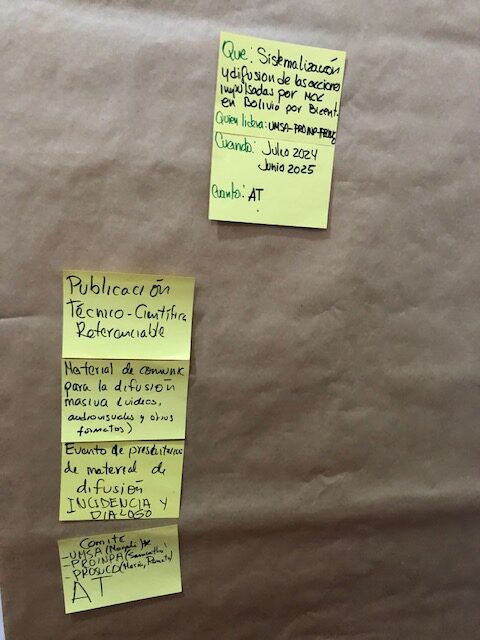 Que: Sistemalización
y difusion de las acciones
impulsadas por
en Bolivia por Bicent.
Quien lidera: UMSA-PROINPA-
Cuando: Julio 2024
Junio 2025
Cuanto: AT
Publicación
Técnico-Científica
Referenciable
Material de comunic
para la difusión
masiva (videos,
audiovisuales y otros
formatos)
Evento de presentacion
de material de
difusión
INCIDENCIA Y
DIALOGO
Comite
-UMSA (Magali)*
-PROINPA (Samantha)
-PROSUCO (Maria, )
AT